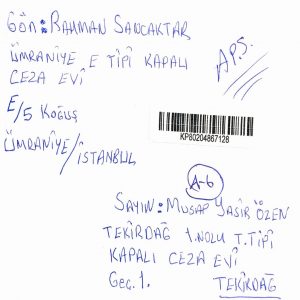 Gön: RAHMAN SANCAKTAR
ÜMRANİYE E TİPİ KAPALI
CEZA EVİ
E/5 Koğuş
ÜMRANİYE/İSTANBUL
A.P.S.
KP80204867128
A-6
SAYIN: MUSAP YASİR ÖZEN
TEKİRDAĞ 1.NOLU T.TİPİ
KAPALI CEZA EVİ
Geç.1.
TEKİRDAĞ